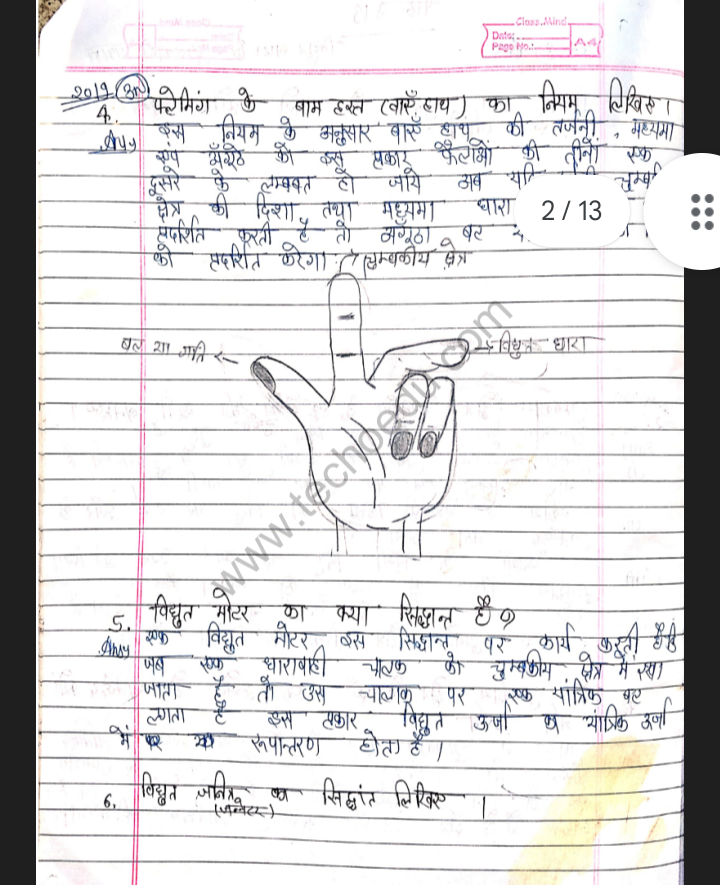 Class Mind
Date:
Page No.:
A4
2019
4. फ्लेमिंग के बाम हस्त (बाएँ हाथ) का नियम लिखिए।
Ans इस नियम के अनुसार बाएँ हाथ की तर्जनी, मध्यमा
एवं अँगूठे को इस प्रकार फैलाओं की तीनों एक
दूसरे के लम्बवत हो जाये अब
क्षेत्र की दिशा तथा मध्यमा धारा
प्रदर्शित करती है तो अंगूठा बल
को प्रदर्शित करेगा।
2 / 13
चुम्बकीय क्षेत्र
बल या गति
विधुत धारा
www.techoedu.com
5. विधुत मोटर का क्या सिद्धान्त है?
Ans एक विधुत मोटर इस सिद्धान्त पर कार्य करती है कि
जब एक धारावाही चालक को चुम्बकीय क्षेत्र में रखा
जाता है तो उस चालक पर एक यांत्रिक बल
लगता है इस प्रकार विधुत ऊर्जा का यांत्रिक ऊर्जा
में रूपान्तरण होता है।
6. विधुत जनित्र का सिद्धांत लिखिए।
(जनरेटर)